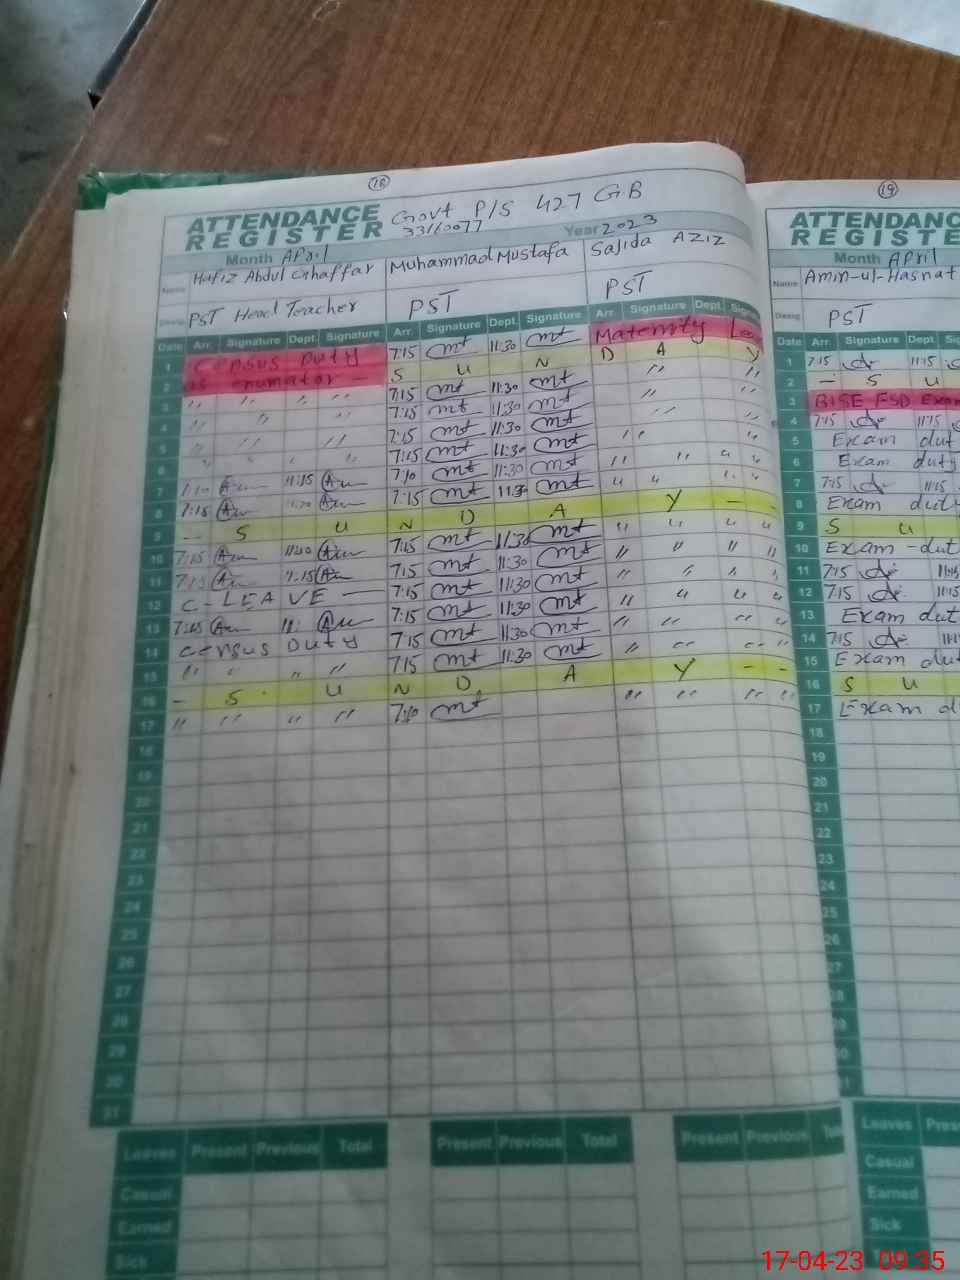 18
ATTENDANCE REGISTER
Govt P/S 427 GB
33160077
Year 2023
Month April
Name Hafiz Abdul Ghaffar Muhammad Mustafa Sajida AZIZ
Desig. PST Head Teacher PST PST
Date Arr. Signature Dept. Signature Arr. Signature Dept. Signature Arr. Signature Dept.
1 Census Duty 7:15 mt 11:30 mt Maternity
2 as enumator — S U N D A Y
3 " " " " 7:15 mt 11:30 mt " "
4 " " " 7:15 mt 11:30 mt " "
5 " " " 7:15 mt 11:30 mt " "
6 " " " " 7:15 mt 11:30 mt " "
7 11:15 7:10 mt 11:30 mt " " " "
8 7:15 7:15 mt 11:30 mt " " " "
9 — S U N D A Y —
10 7:15 7:15 mt 11:30 mt " " " "
11 7:15 7:15 mt 11:30 mt " " " "
12 C-LEAVE — 7:15 mt 11:30 mt " " " "
13 7:15 mt 11:30 mt " " " "
14 Census Duty 7:15 mt 11:30 mt " " " "
15 " " " " 7:15 mt 11:30 mt " " " "
16 — S U N D A Y — —
17 " " " " 7:10 mt " " " "
18
19
20
21
22
23
24
25
26
27
28
29
30
31
Leaves Present Previous Total Present Previous Total Present Previous
Casual
Earned
Sick
19
ATTENDANCE
REGISTER
Month April
Name Amin-ul-Hasnat
Desig. PST
Date Arr. Signature Dept.
1 7:15 11:15
2 — S U
3 BISE FSD Exam
4 7:15 11:15
5 Exam duty
6 Exam duty
7 7:15 11:15
8 Exam duty
9 S U
10 Exam - dut
11 7:15 11:15
12 7:15 11:15
13 Exam dut
14 7:15
15 Exam du
16 S U
17 Exam d
18
19
20
21
22
23
24
25
26
27
Leaves
Casual
Earned
Sick
17-04-23 09:35